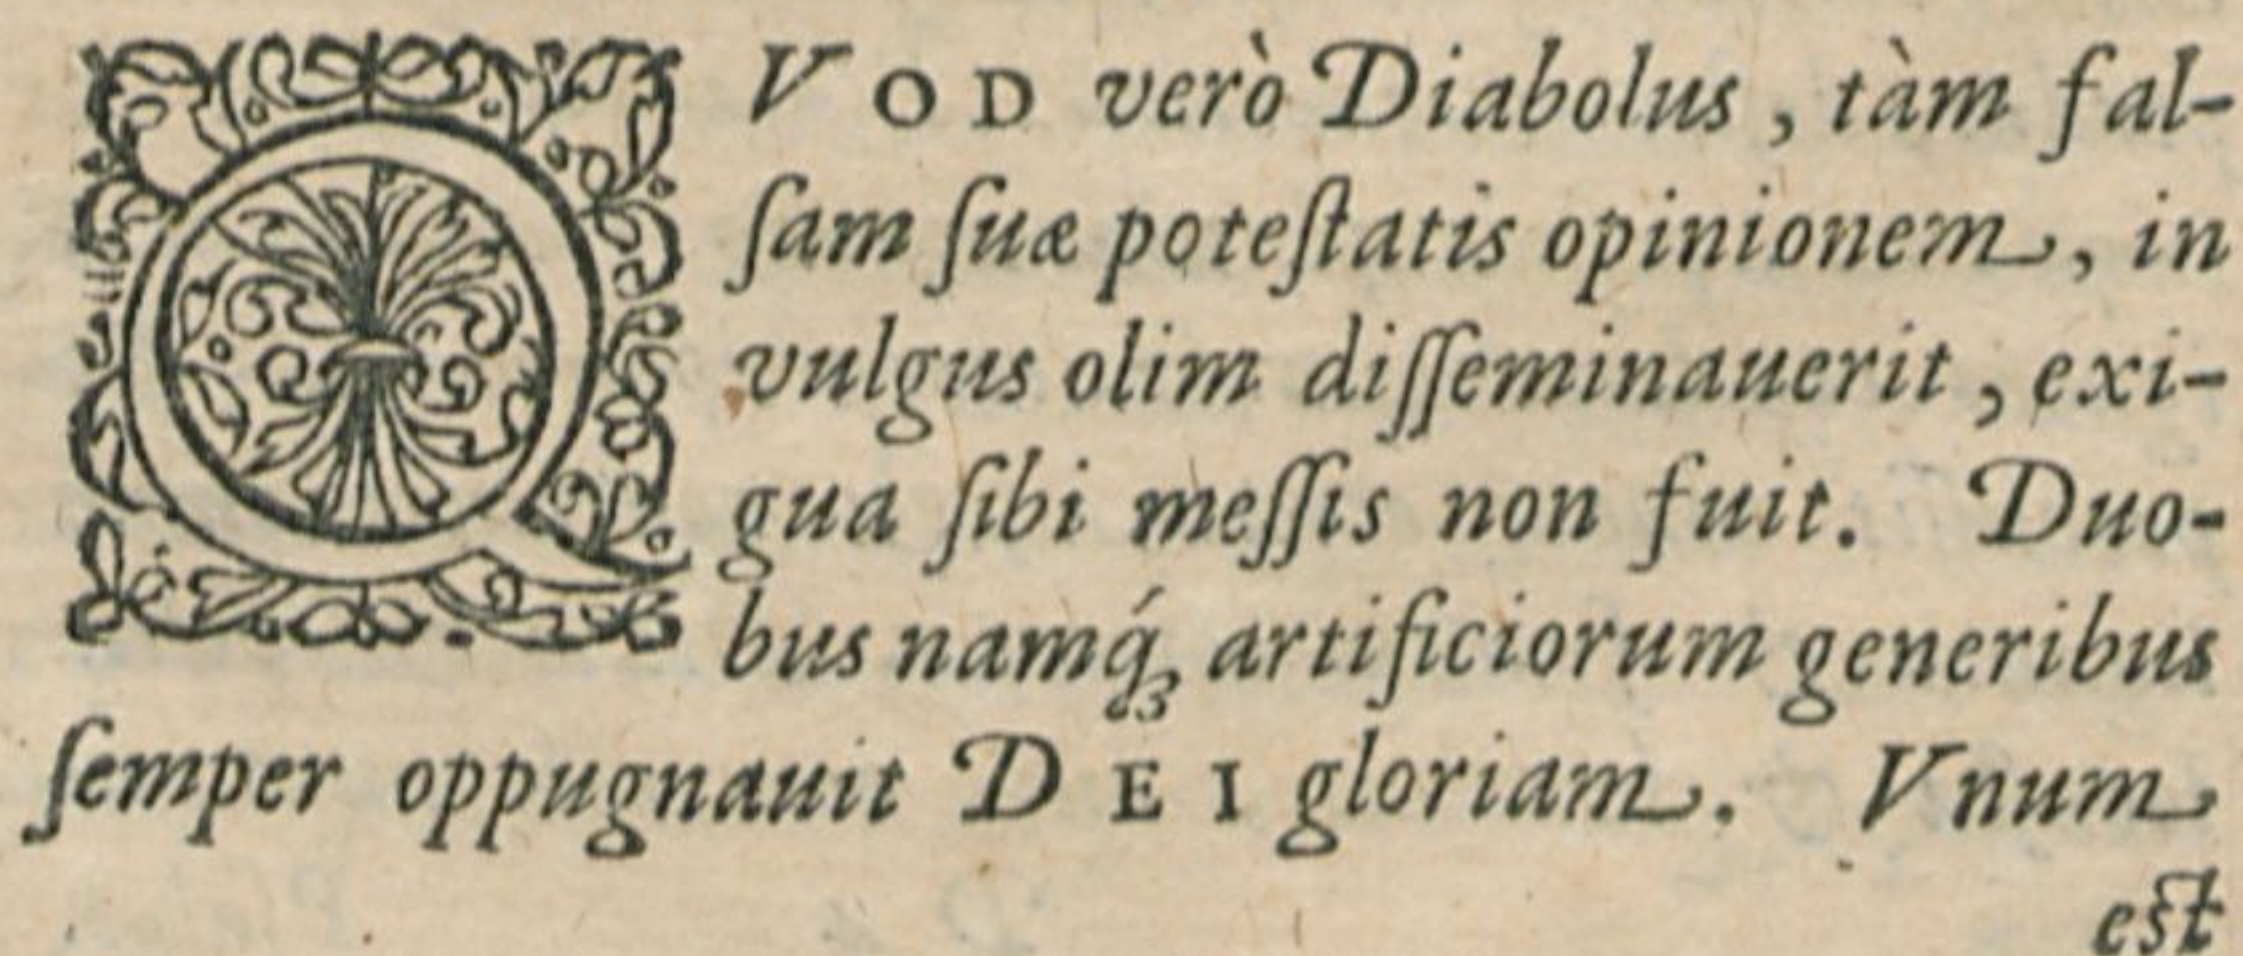 QVOD verò Diabolus, tàm fal-
ſam ſuæ poteſtatis opinionem, in
vulgus olim diſſeminauerit, exi-
gua ſibi meſſis non fuit. Duo-
bus namq́ꝫ artificiorum generibus
ſemper oppugnauit DEI gloriam. Vnum
eſt